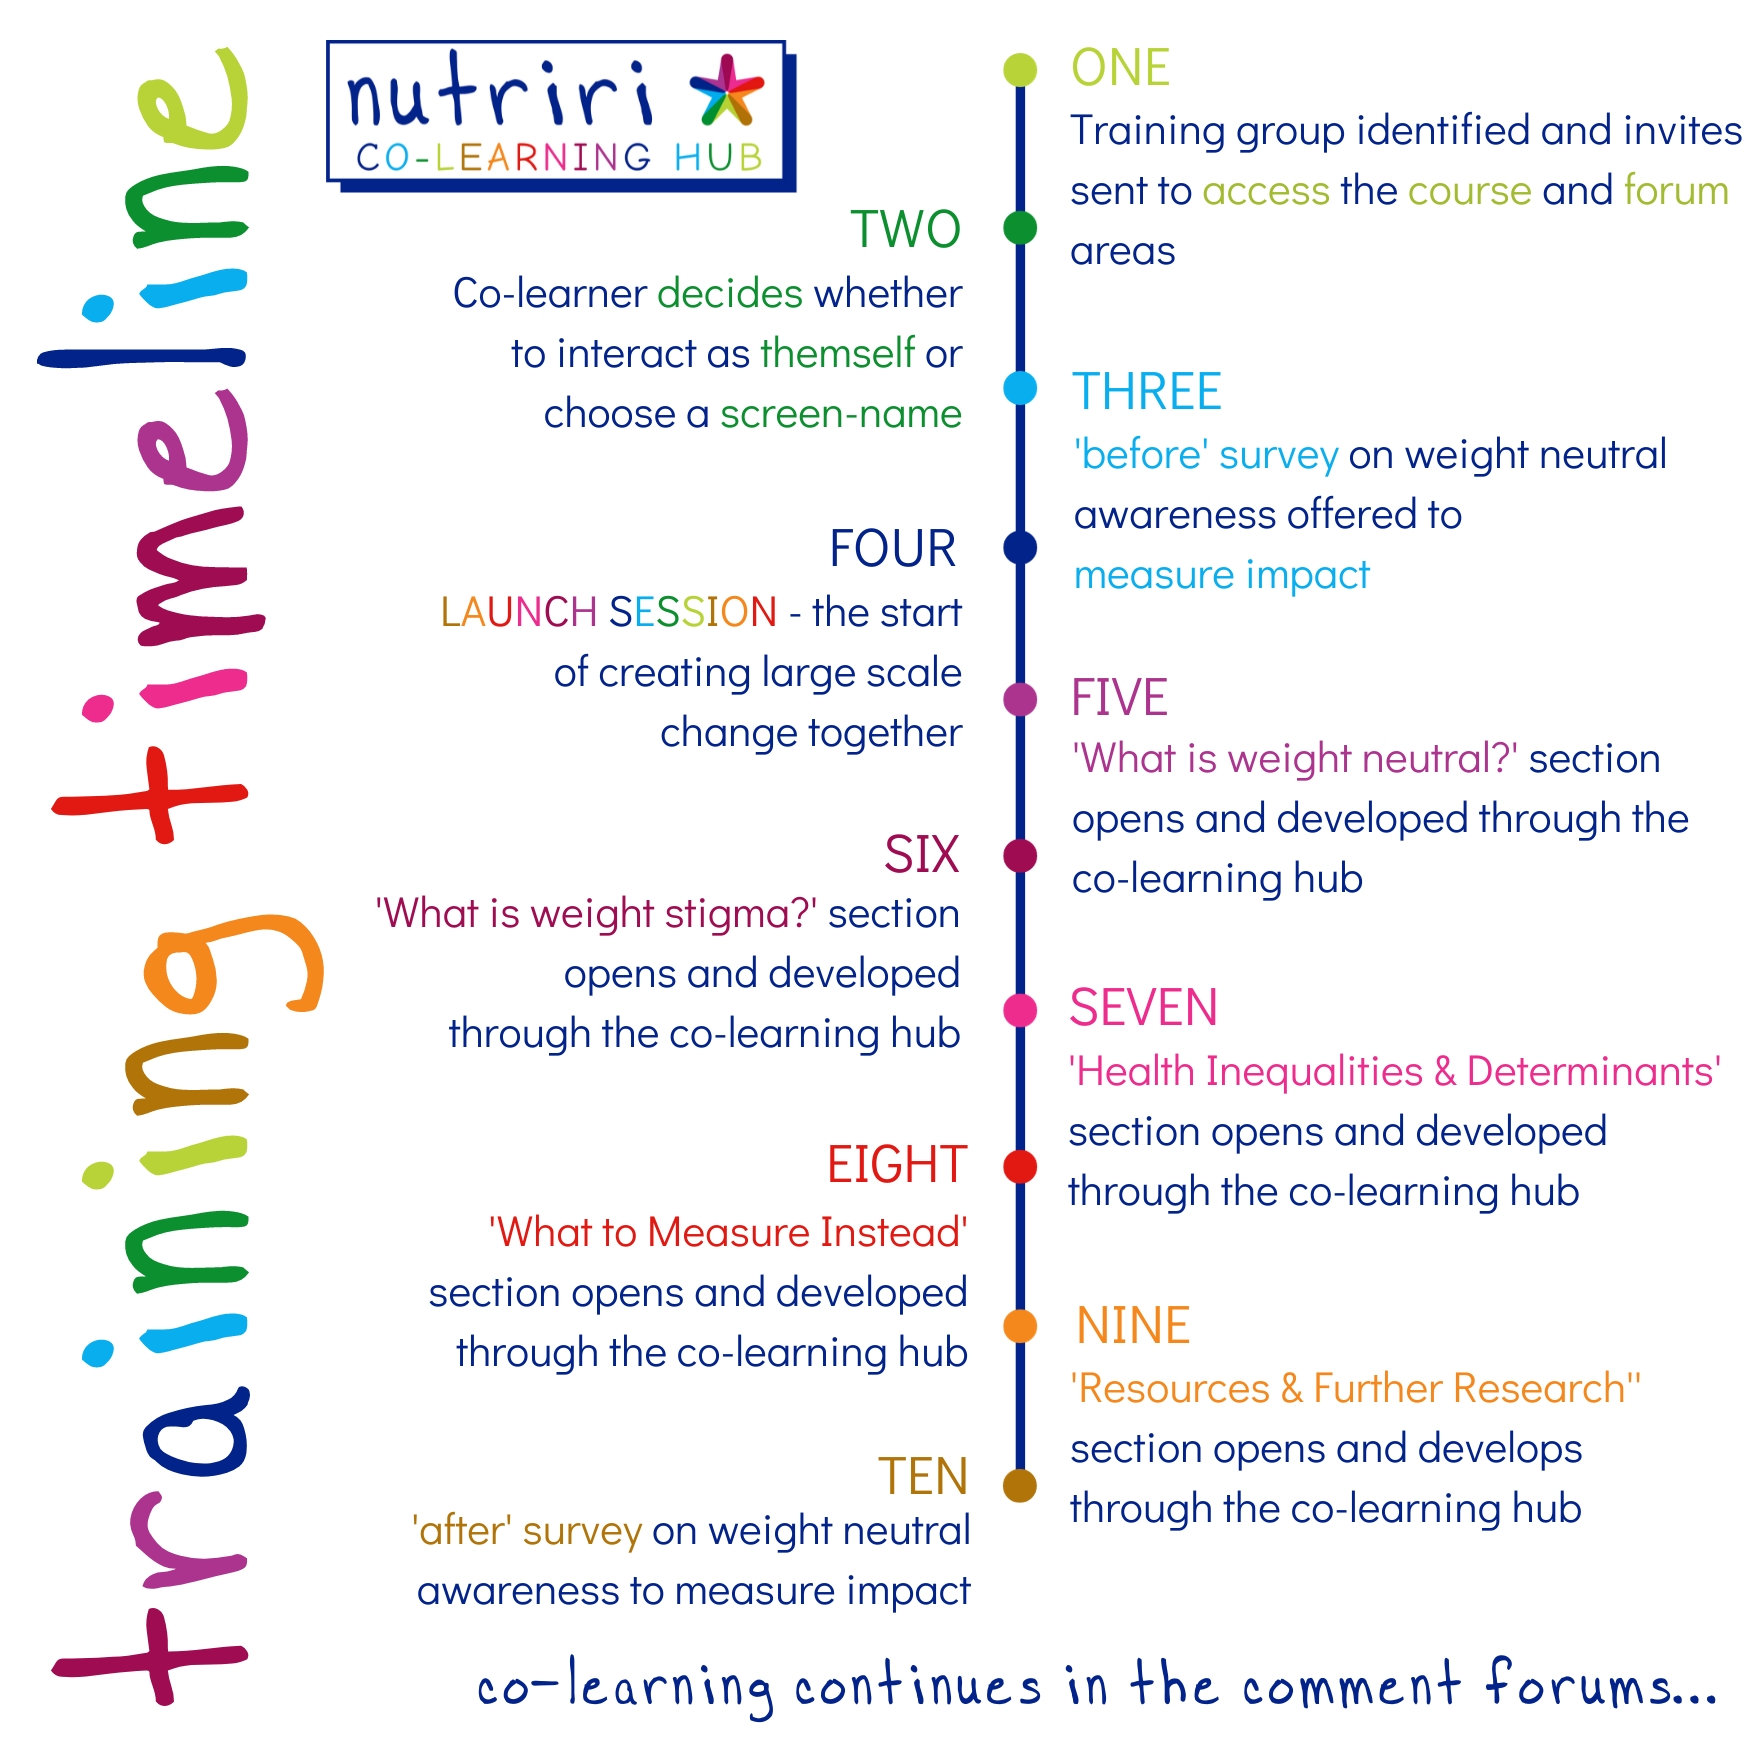 training timeline
nutriri
CO-LEARNING HUB
ONE
Training group identified and invites
sent to access the course and forum
areas
TWO
Co-learner decides whether
to interact as themself or
choose a screen-name
THREE
'before' survey on weight neutral
awareness offered to
measure impact
FOUR
LAUNCH SESSION - the start
of creating large scale
change together
FIVE
'What is weight neutral?' section
opens and developed through the
co-learning hub
SIX
'What is weight stigma?' section
opens and developed
through the co-learning hub
SEVEN
'Health Inequalities & Determinants'
section opens and developed
through the co-learning hub
EIGHT
'What to Measure Instead'
section opens and developed
through the co-learning hub
NINE
'Resources & Further Research"
section opens and develops
through the co-learning hub
TEN
'after' survey on weight neutral
awareness to measure impact
co-learning continues in the comment forums...